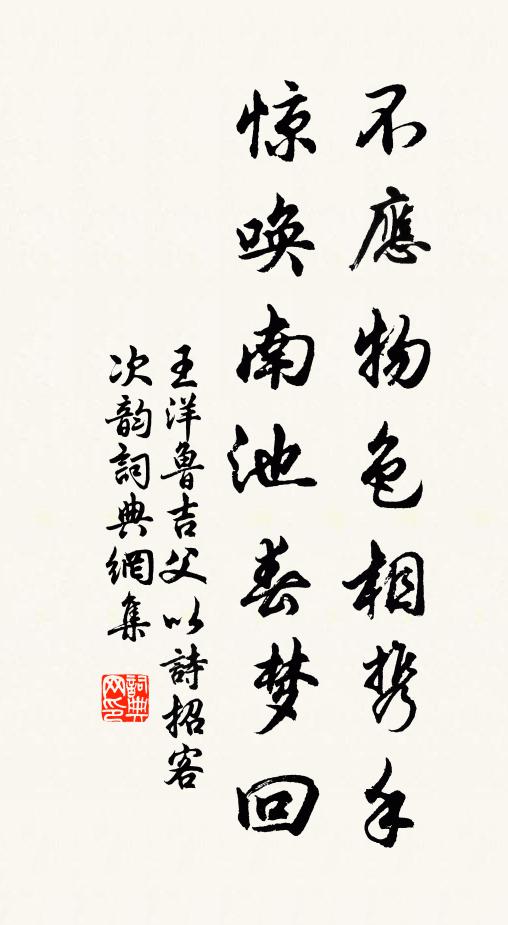 不應物色相携手
惊唤南池春梦回
王洋鲁吉父以詩招客
次韵詞典網集
詞典网印